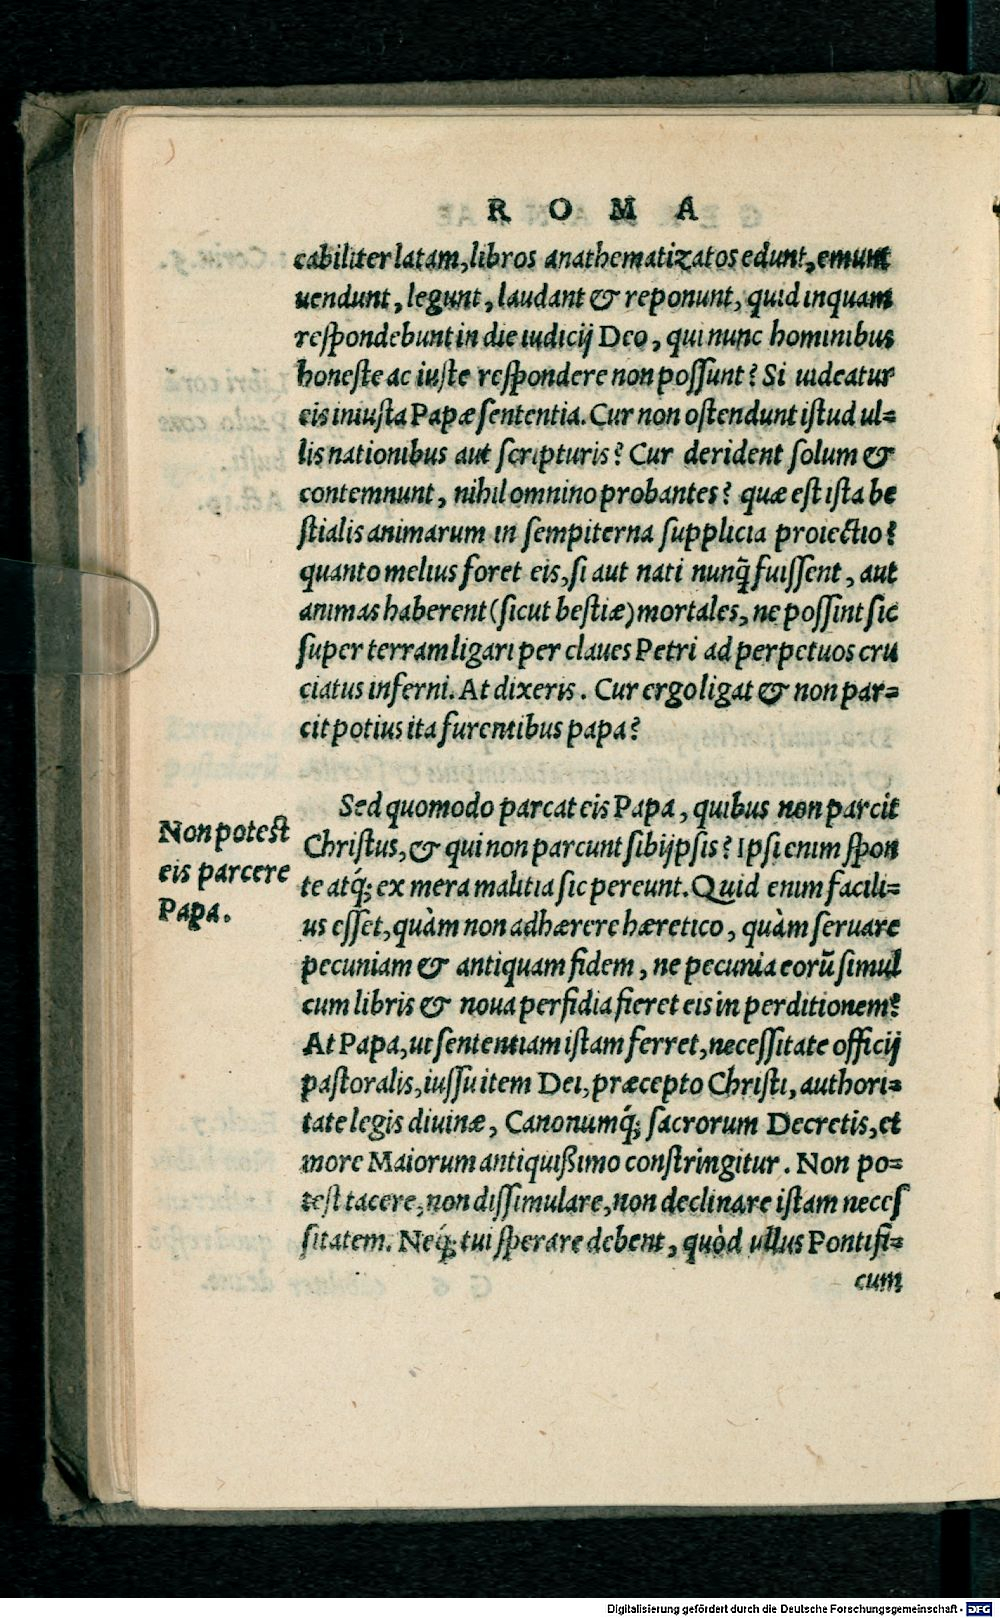 R O M A
cabiliter latam, libros anathematizatos edunt, emunt
uendunt, legunt, laudant & reponunt, quid inquam
reſpondebunt in die iudicij Deo, qui nunc hominibus
honeſte ac iuſte reſpondere non poſſunt? Si uideatur
eis iniuſta Papæ ſententia. Cur non oſtendunt iſtud ul=
lis nationibus aut ſcripturis? Cur derident ſolum &
contemnunt, nihil omnino probantes? quæ eſt iſta be
ſtialis animarum in ſempiterna ſupplicia proiectio?
quanto melius foret eis, ſi aut nati nunq̃ fuiſſent, aut
animas haberent (ſicut beſtiæ) mortales, ne poſſint ſic
ſuper terram ligari per claues Petri ad perpetuos cru
ciatus inferni. At dixeris. Cur ergo ligat & non par=
cit potius ita furentibus papa?
Sed quomodo parcat eis Papa, quibus non parcit
Non poteſt
eis parcere
Papa.
Chriſtus, & qui non parcunt ſibijpſis? Ipſi enim ſpon
te atq́; ex mera malitia ſic pereunt. Quid enim facili=
us eſſet, quàm non adhærere hæretico, quàm ſeruare
pecuniam & antiquam fidem, ne pecunia eorũ ſimul
cum libris & noua perfidia fieret eis in perditionem?
At Papa, ut ſententiam iſtam ferret, neceſſitate officij
paſtoralis, iuſſu item Dei, præcepto Chriſti, authori=
tate legis diuinæ, Canonumq́; ſacrorum Decretis, et
more Maiorum antiquißimo conſtringitur. Non po=
teſt tacere, non diſſimulare, non declinare iſtam neceſ
ſitatem. Neq́; tui ſperare debent, quòd ullus Pontifi=
cum
Digitalisierung gefördert durch die Deutsche Forschungsgemeinschaft - DFG